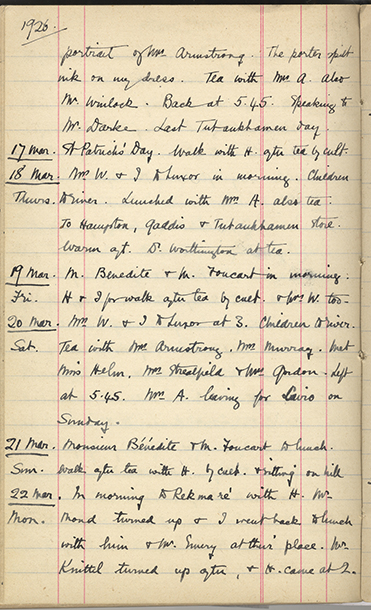 1926.
portrait of Mrs Armstrong. The porter spilt
ink on my dress. Tea with Mrs A. also
Mr Winlock. Back at 5.45. Speaking to
Mr Darke. Last Tutankhamen day.
17 Mar. St Patrick's Day. Walk with H. after tea by cult.
18 Mar. Mrs W. & I to Luxor in morning. Children
Thurs. to river. Lunched with Mrs A. also tea.
To Hampton, Gaddis & Tutankhamen store.
Warm aft. Dr Worthington at tea.
19 Mar. M. Bénédite & M. Foucart in morning.
Fri. H & I for walk after tea by cult. & Mrs W. too.
20 Mar. Mrs W. & I to Luxor at 3. Children to river.
Sat. Tea with Mrs Armstrong. Mrs Murray. Met
Miss Helm, Mrs & Mrs Gordon. Left
at 5.45. Mrs A. leaving for Cairo on
Sunday.
21 Mar. Monsieur Bénédite & M. Foucart to lunch.
Sun. Walk after tea with H. by cult. & sitting on hill
22 Mar. In morning to Rekmare with H. Mr
Mon. Mond turned up & I went back to lunch
with him & Mr. Emery at their place. Mr
Knittel turned up after, & H. came at 2.